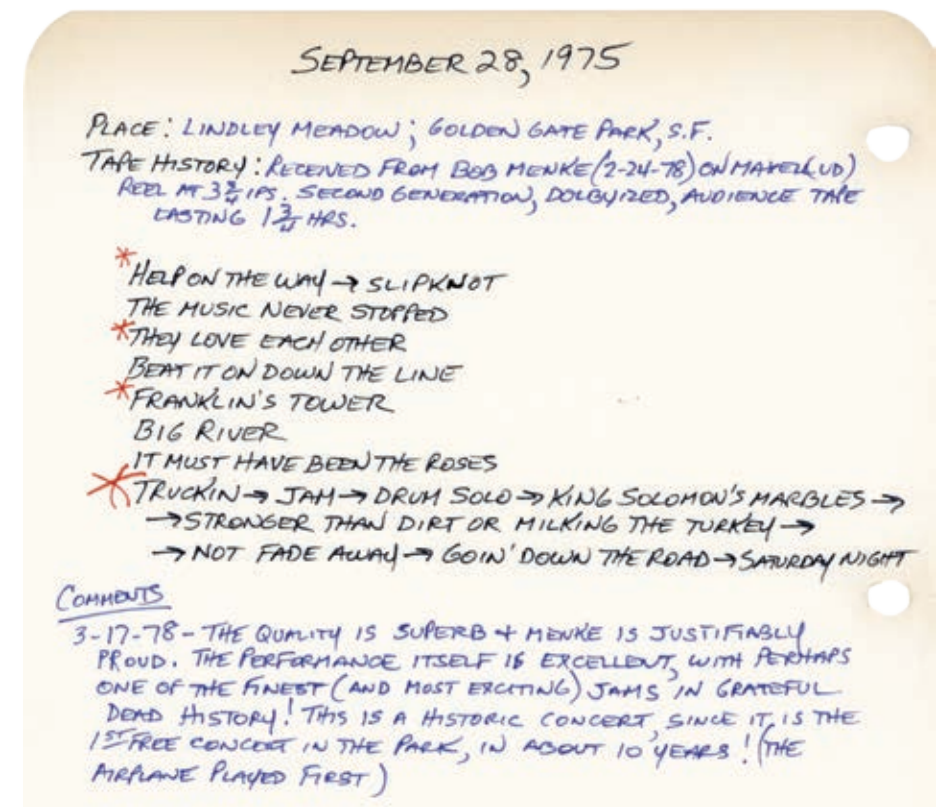 SEPTEMBER 28, 1975
PLACE: LINDLEY MEADOW; GOLDEN GATE PARK, S.F.
TAPE HISTORY: RECEIVED FROM BOB MENKE (2-24-78) ON MAXELL UD)
REEL AT 3 3/4 IPS. SECOND GENERATION, DOLBYIZED, AUDIENCE TAPE
LASTING 1 3/4 HRS.
*HELP ON THE WAY → SLIPKNOT
THE MUSIC NEVER STOPPED
*THEY LOVE EACH OTHER
BEAT IT ON DOWN THE LINE
*FRANKLIN'S TOWER
BIG RIVER
IT MUST HAVE BEEN THE ROSES
*TRUCKIN → JAM → DRUM SOLO → KING SOLOMON'S MARBLES →
→ STRONGER THAN DIRT OR MILKING THE TURKEY →
→ NOT FADE AWAY → GOIN' DOWN THE ROAD → SATURDAY NIGHT
COMMENTS
3-17-78 - THE QUALITY IS SUPERB + MENKE IS JUSTIFIABLY
PROUD. THE PERFORMANCE ITSELF IS EXCELLENT, WITH PERHAPS
ONE OF THE FINEST (AND MOST EXCITING) JAMS IN GRATEFUL
DEAD HISTORY! THIS IS A HISTORIC CONCERT, SINCE IT IS THE
1ST FREE CONCERT IN THE PARK, IN ABOUT 10 YEARS! (THE
AIRPLANE PLAYED FIRST)